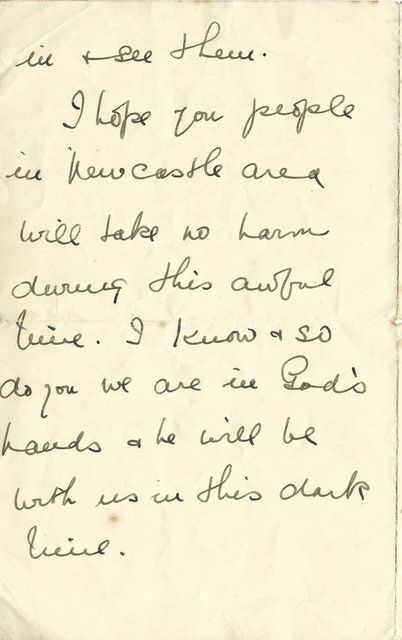 in & see them.
I hope you people
in Newcastle area
will take no harm
during this awful
time. I know & so
do you we are in God's
hands & he will be
with us in this dark
time.